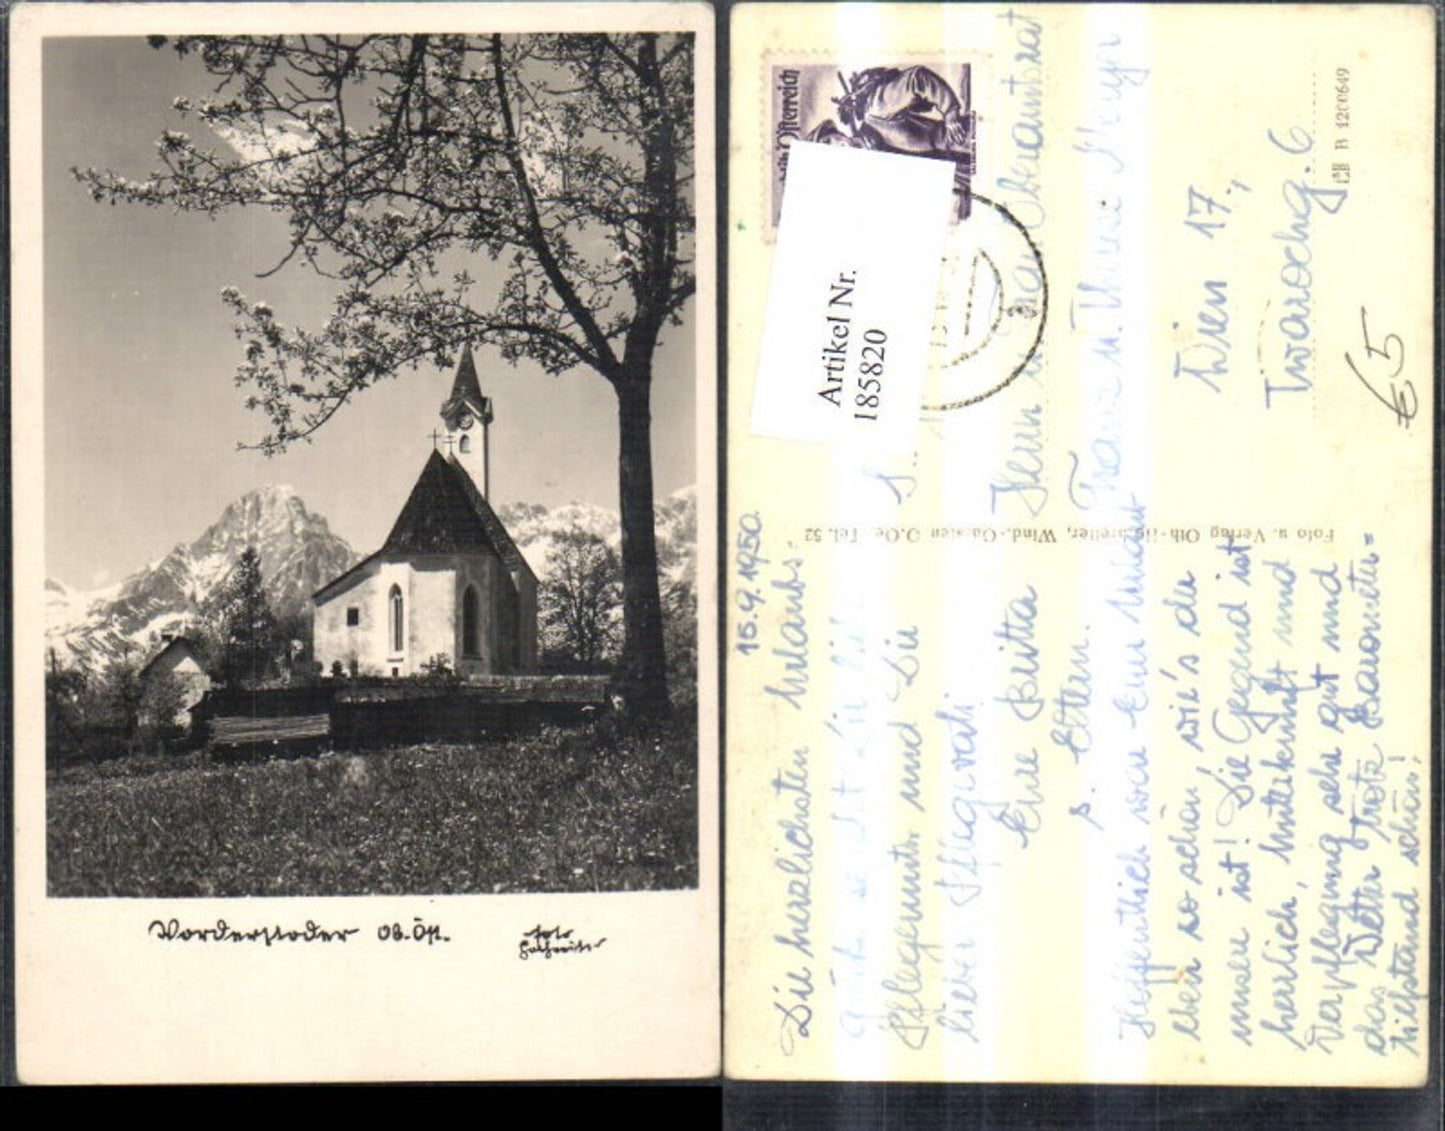 Vorderstoder Ob. Öst.
foto
Österreich
Artikel Nr.
185820
15.9.1950.
Die herzlichsten Urlaubs-
Pflegemutti und Die
lieber Pflegevati
Eure Britta
s. Eltern.
Hoffentlich war Euer Urlaub
eben so schön, wie's der
unsere ist! Die Gegend ist
herrlich, Unterkunft und
Verpflegung sehr gut und
das Wetter trotz Barometer=
tiefstand schön!
Foto u. Verlag Oth. Hochreiter, Wind.-Garsten O.Oe. Tel. 52
Herrn u. Frau Oberamtsrat
Franz u.
Wien 17.,
6
B 1200649
€5